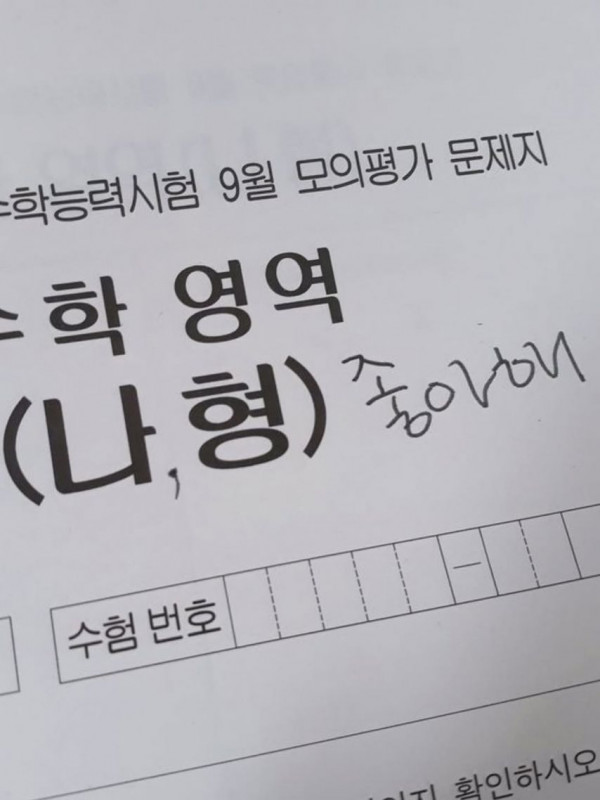 수학능력시험 9월 모의평가 문제지
수학 영역
(나,형) 좋아해
수험 번호
확인하시오